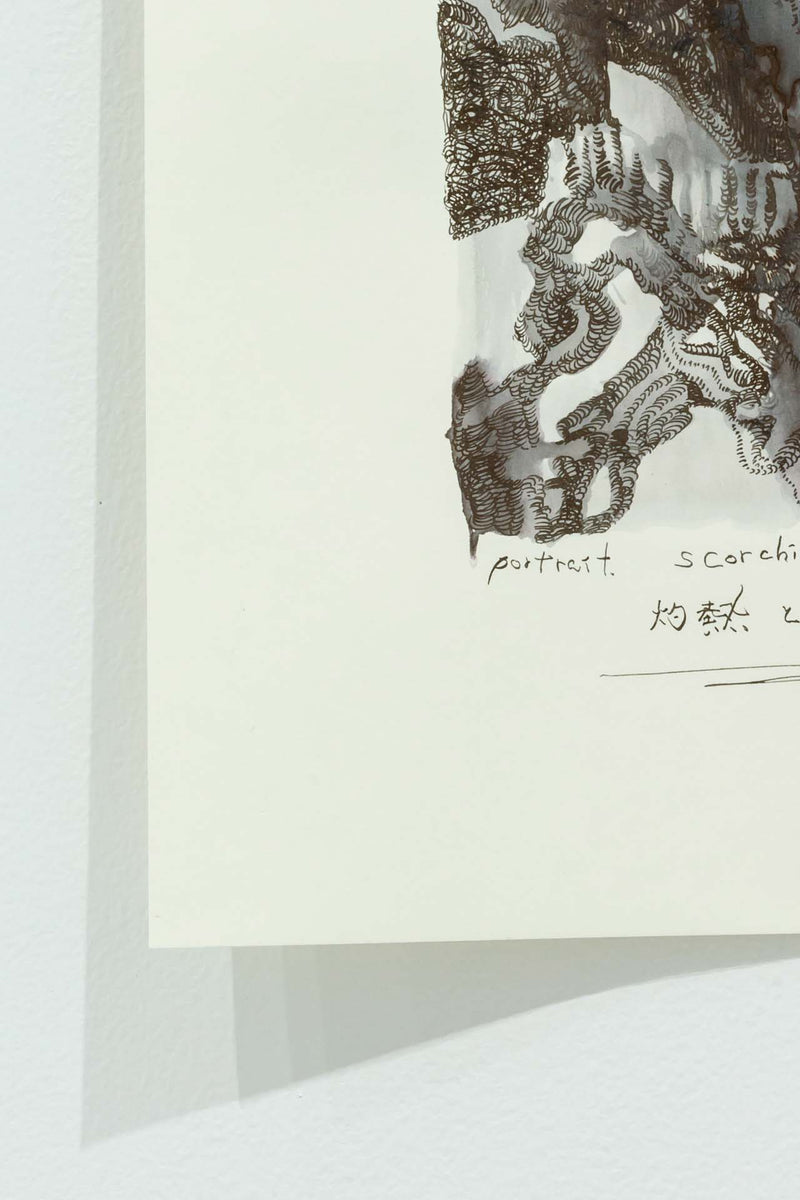 portrait. scorchi
灼熱 と